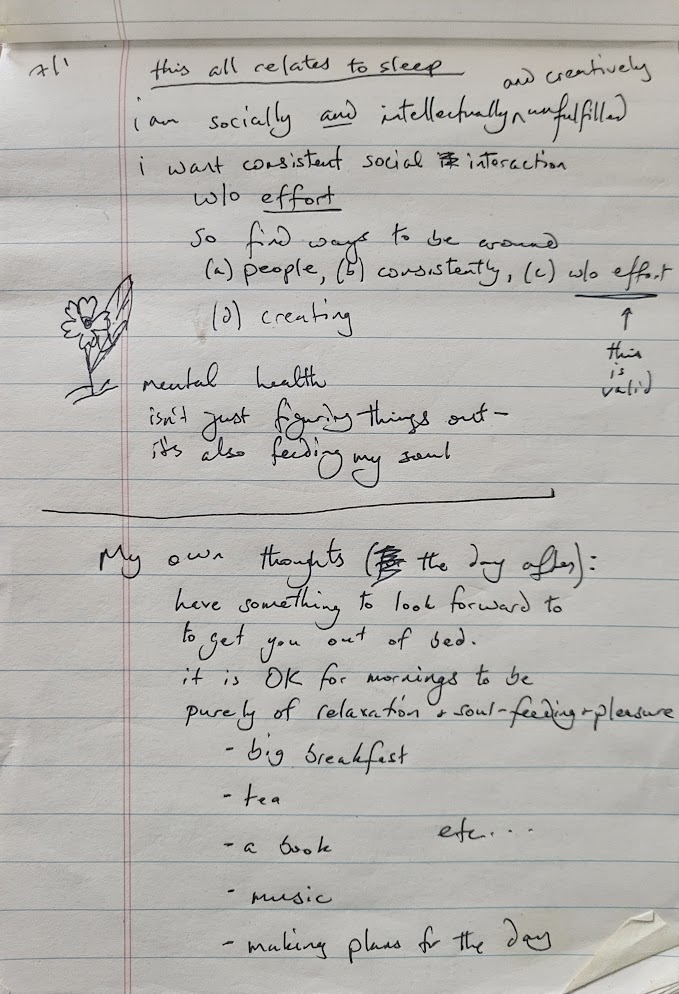 7/1
this all relates to sleep
and creatively
i am socially and intellectually ^ unfulfilled
i want consistent social interaction
w/o effort
so find ways to be around
(a) people, (b) consistently, (c) w/o effort
(d) creating
↑
this
is
valid
mental health
isn't just figuring things out –
it's also feeding my soul
My own thoughts (the day after):
have something to look forward to
to get you out of bed.
it is OK for mornings to be
purely of relaxation + soul-feeding + pleasure
- big breakfast
- tea
- a book
etc....
- music
- making plans for the day